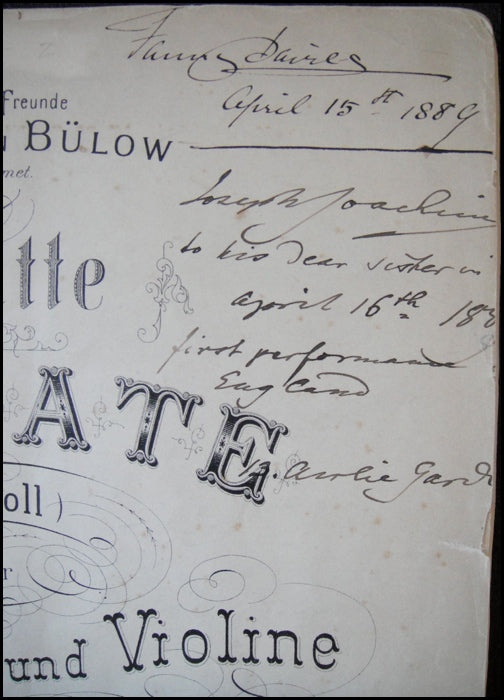 Fanny Davies
April 15st 1889
Freunde
BÜLOW
Joseph Joachim
to his dear sister in
April 16th 188
first performance
England
tte
ATE
oll)
r
und Violine